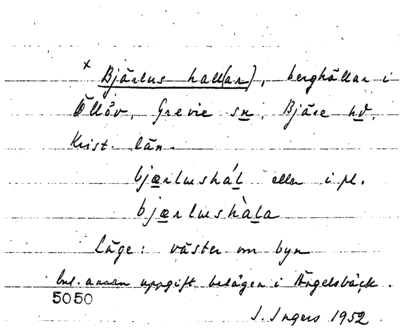 × Bjärlus hall(ar), berghällar i
Öllöv, Grevie sn, Bjäre hd,
Krist. län.
bjærlushál eller i pl.
bjærlushàla
Läge: väster om byn
Enl. annan uppgift belägen i Ängelsbäck.
5050
J. Ingers 1952.